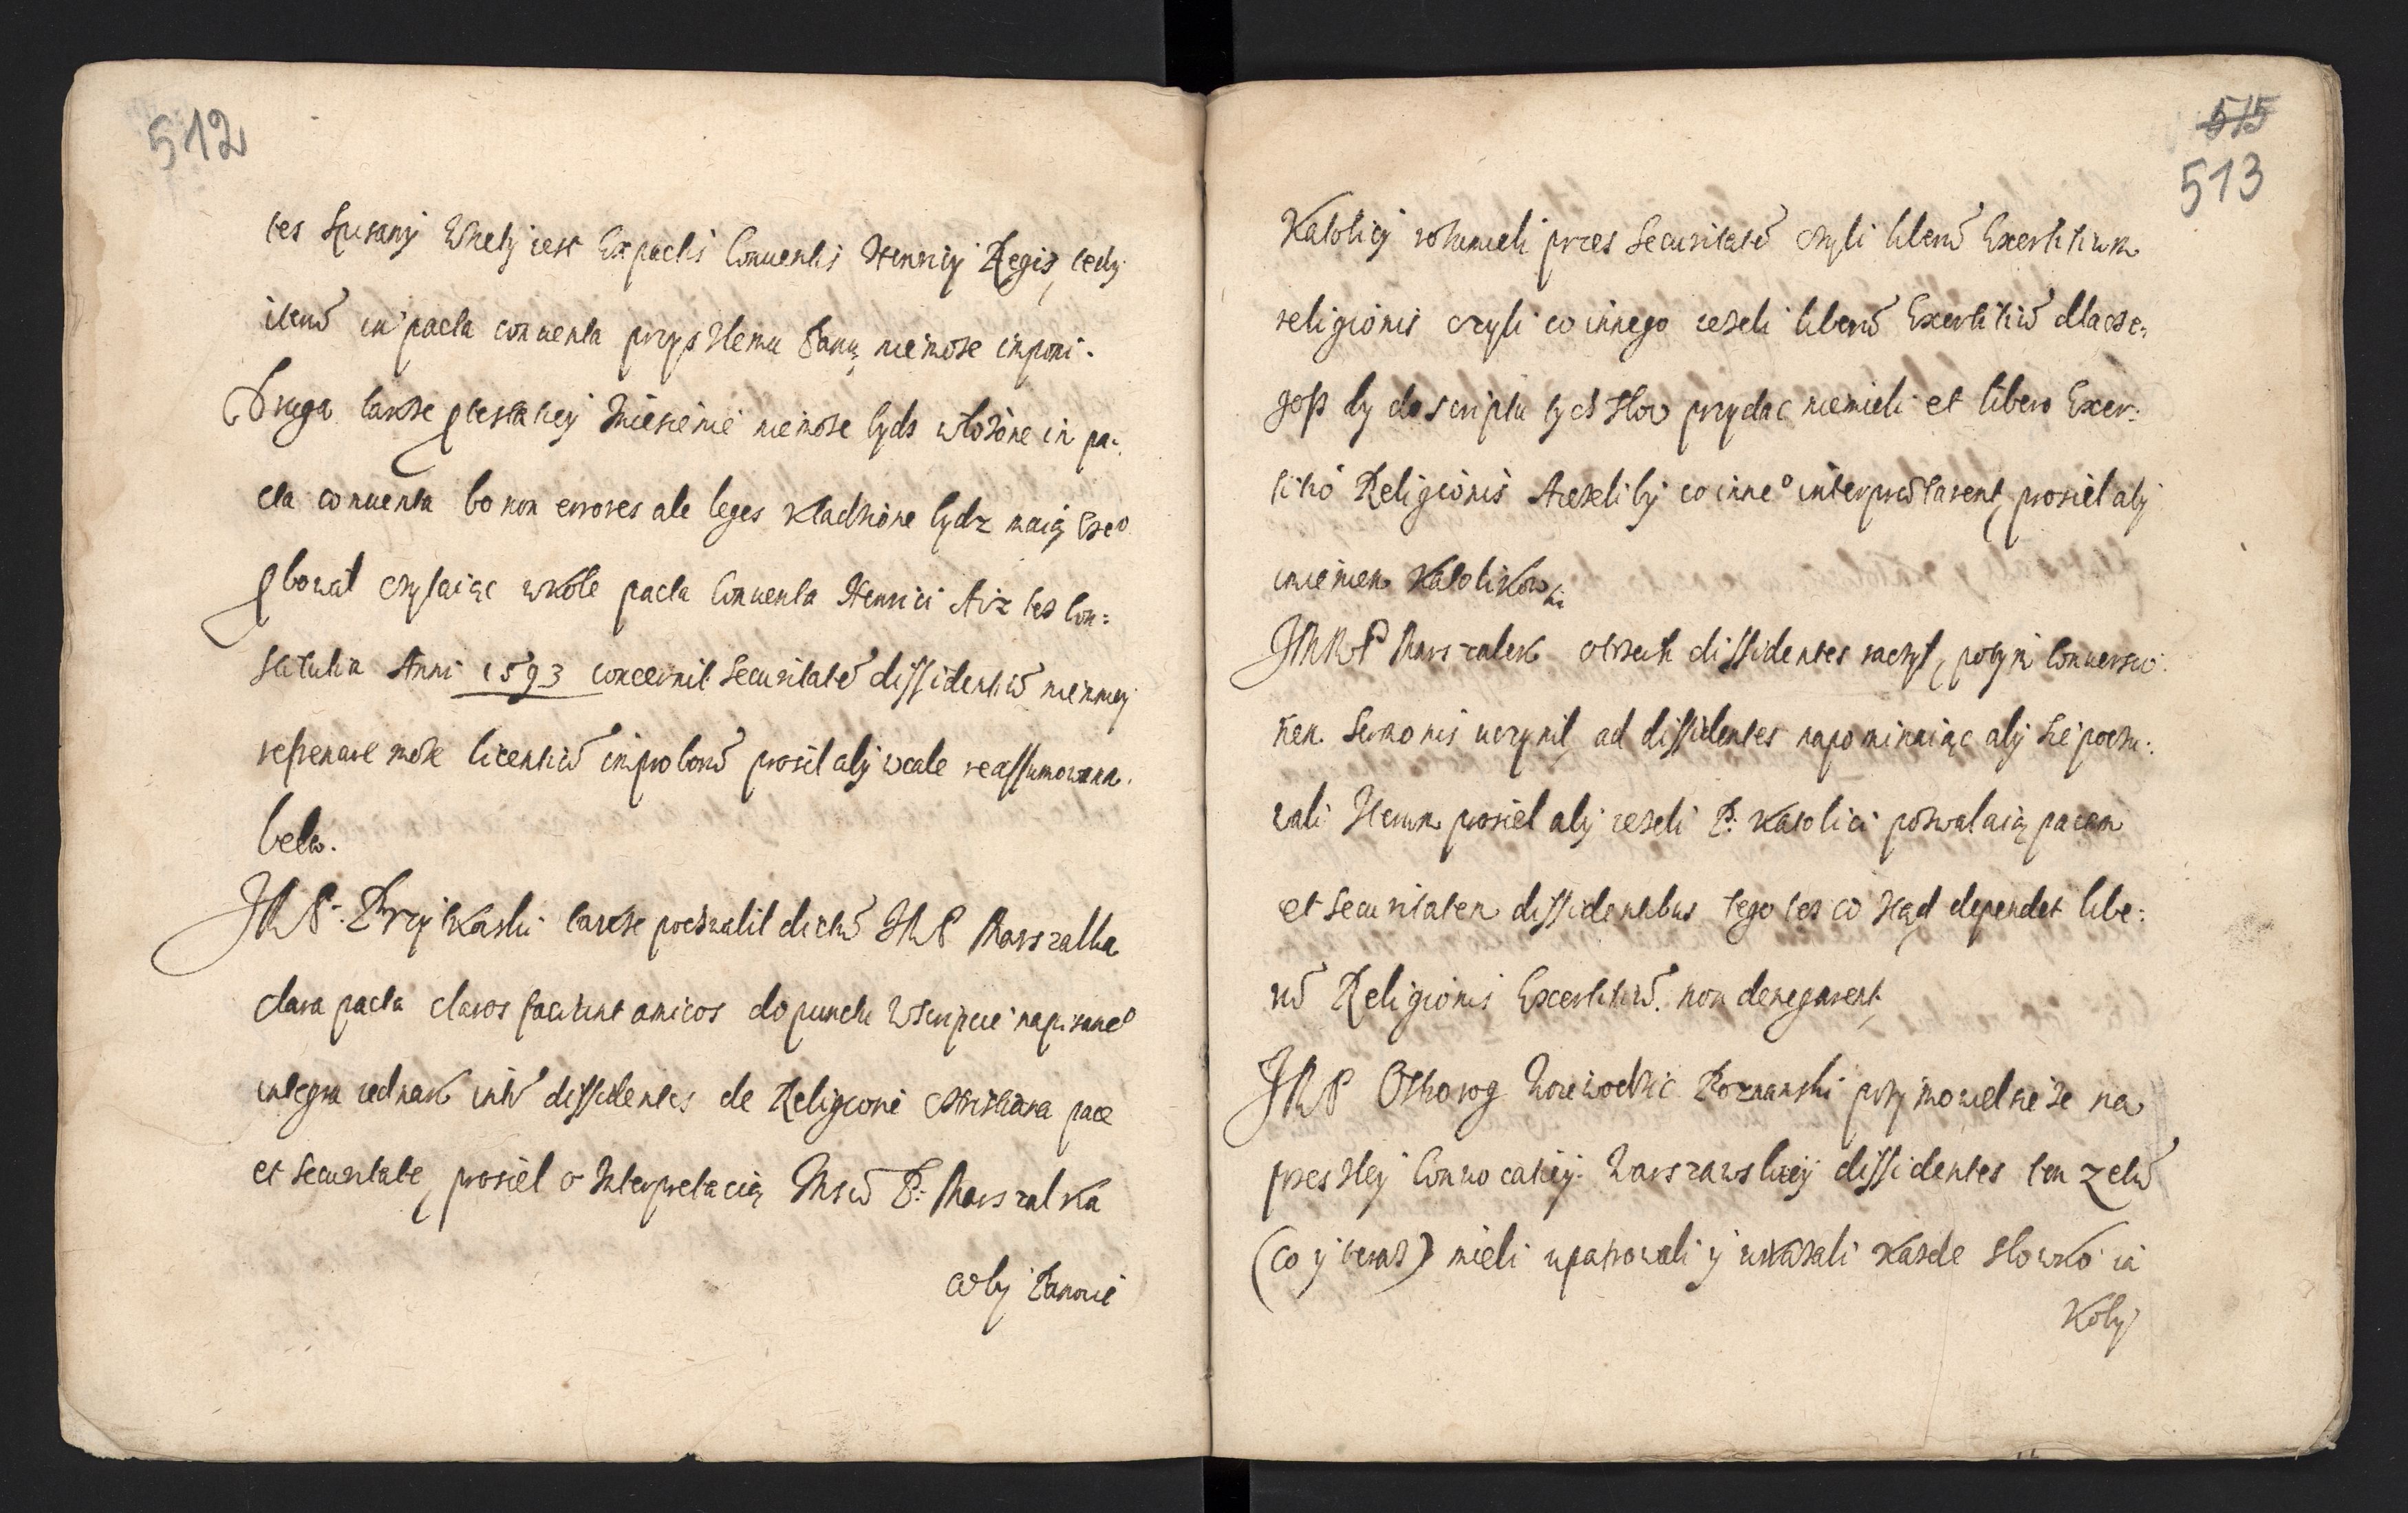 512
tes spisany wzięty iest Ex pactis Conuentis Henrici Regis, tedy
iterũ in pacta conuenta przyszłemu Panu niemoze imponi.
Druga takze protestatiey Zniesienie niemoze bydz włozone in pa:
cta conuenta bo non errores ale leges kładzione bydz maią Czeº
probował czytaiąc wkole pacta Conuenta Henrici A iz tes Con:
stitutia Anni 1593 concernit Securitatẽ dissidentiũ niemniey
refrenare moze licentiã improborũ prosił aby wcale reassumowana
beła.
JMP. Przyłkaski takze pochwalił dictũ JMP Marszałka
clara pacta claros faciunt amicos do punctu w scripcie napisaneº
integra iednak inter dissidentes de Religione Christiana pace
et Securitate, prosieł o Interpretacią Jmści P. Marszałka
coby Panowie
515
513
Katolicy rozumieli przes Securitatẽ czyli liberũ Exertitium
religionis czyli co innego iezeli liberũ Exertitiũ dlacze:
gosz by do scriptu tych słow przydac niemieli et libero Exer:
titio Religionis A iezeliby co inneº interpretarent, prosieł aby
imieniem Katolikow
JMP Marszałek otrzech dissidentes raczył, potym Conuersio:
nem Sermonis uczynił ad dissidentes napominaiąc aby sie poczu:
wali Zatym prosieł aby iezeli P. Katolici pozwalaią pacem
et Securitatem dissidentibus tego tes co stąd dependet libe:
rũ Religionis Exertitiũ non denegarent,
JMP Ostrorog Woiewodzic Poznanski przymowieł sie ze na
przeszłey Conuocatiey Warszawskiey dissidentes ten zelũ
(co y teraz) mieli upatrowali y wskazali kazde słowko ia
koby